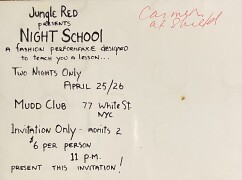 Jungle Red
PRESENTS
NIGHT SCHOOL
A fashion performance designed
to teach you a lesson...
Two Nights Only
April 25/26
MUDD CLUB 77 White St.
NYC
Invitation Only - admits 2
$6 per person
11 p.m.
PRESENT THIS INVITATION!
Carmen